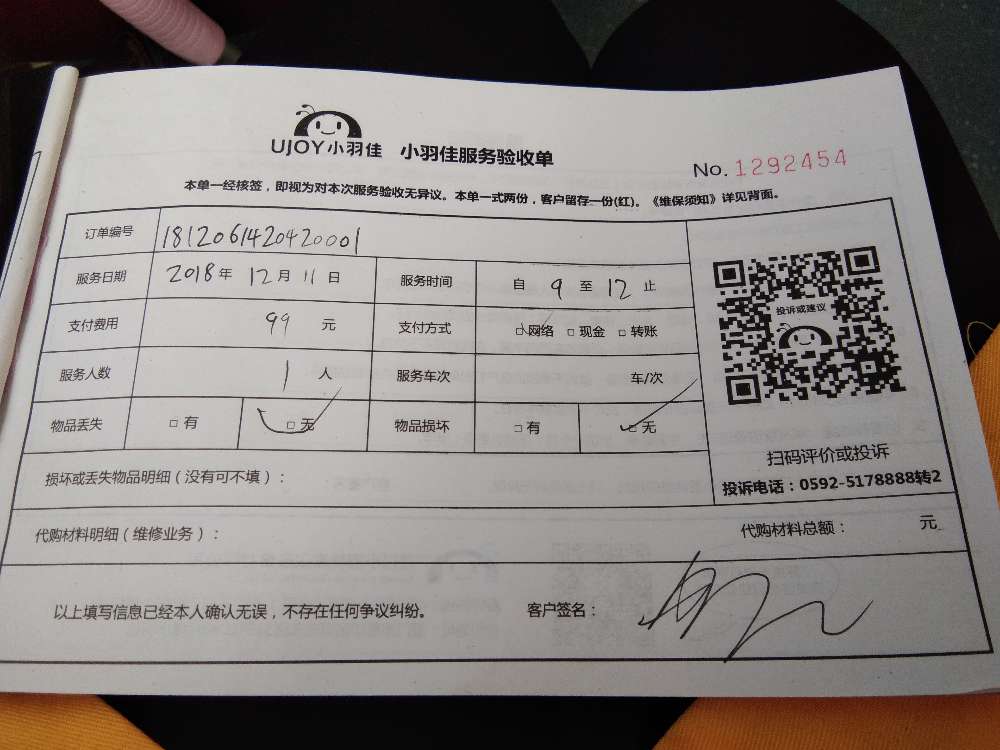 UJOY小羽佳 小羽佳服务验收单
No. 1292454
本单一经核签，即视为对本次服务验收无异议。本单一式两份，客户留存一份(红)。《维保须知》详见背面。
订单编号 1812061420420001
服务日期 2018年 12月 11日 服务时间 自 9 至 12 止
支付费用 99 元 支付方式 □网络 □现金 □转账
服务人数 1 人 服务车次 车/次
物品丢失 □有 □无 物品损坏 □有 □无
投诉或建议
扫码评价或投诉
投诉电话：0592-5178888转2
损坏或丢失物品明细（没有可不填）：
代购材料明细（维修业务）： 代购材料总额： 元
以上填写信息已经本人确认无误，不存在任何争议纠纷。 客户签名：